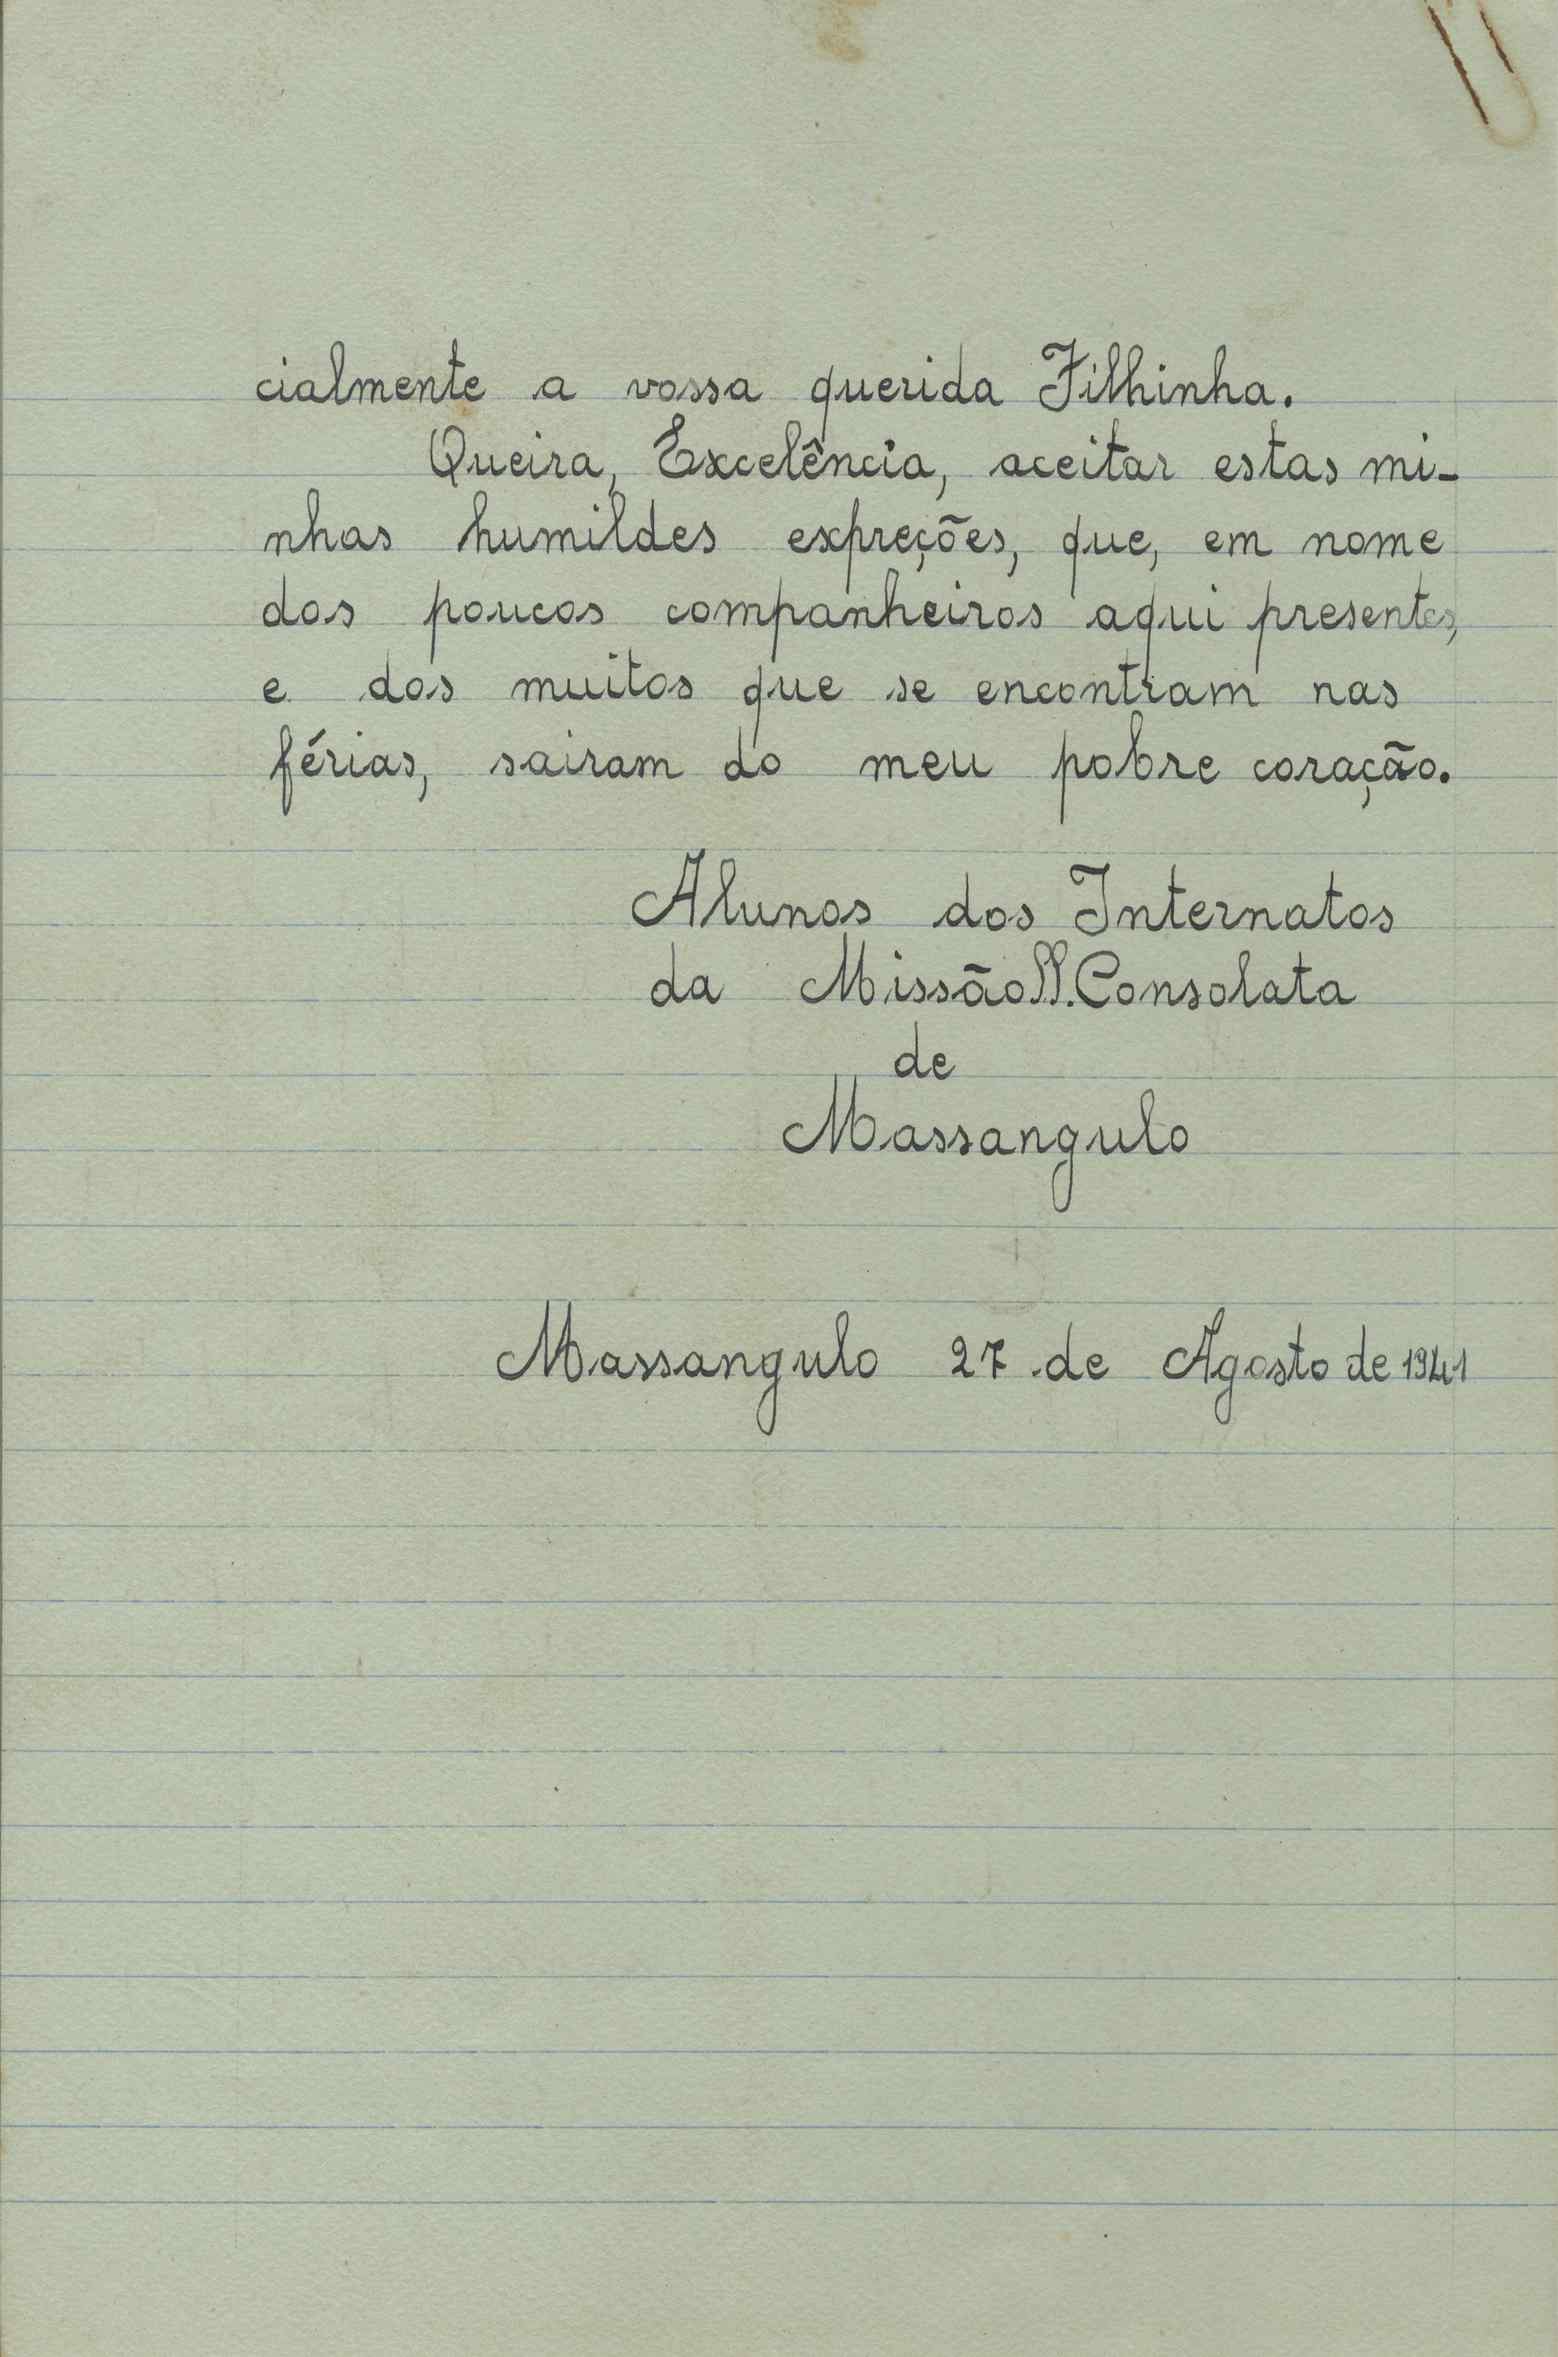 cialmente a vossa querida Filhinha.
Queira, Excelência, aceitar estas mi-
nhas humildes expreções, que, em nome
dos poucos companheiros aqui presentes,
e dos muitos que se encontram nas
férias, sairam do meu pobre coração.
Alunos dos Internatos
da Missão SS. Consolata
de
Massangulo
Massangulo 27 de Agosto de 1941